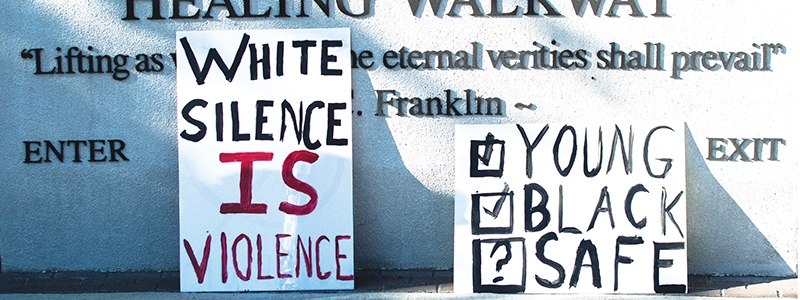 HEALING WALKWAY
“Lifting as the eternal verities shall prevail”
Franklin ~
ENTER
EXIT
WHITE
SILENCE
IS
VIOLENCE
☑ YOUNG
☑ BLACK
? SAFE